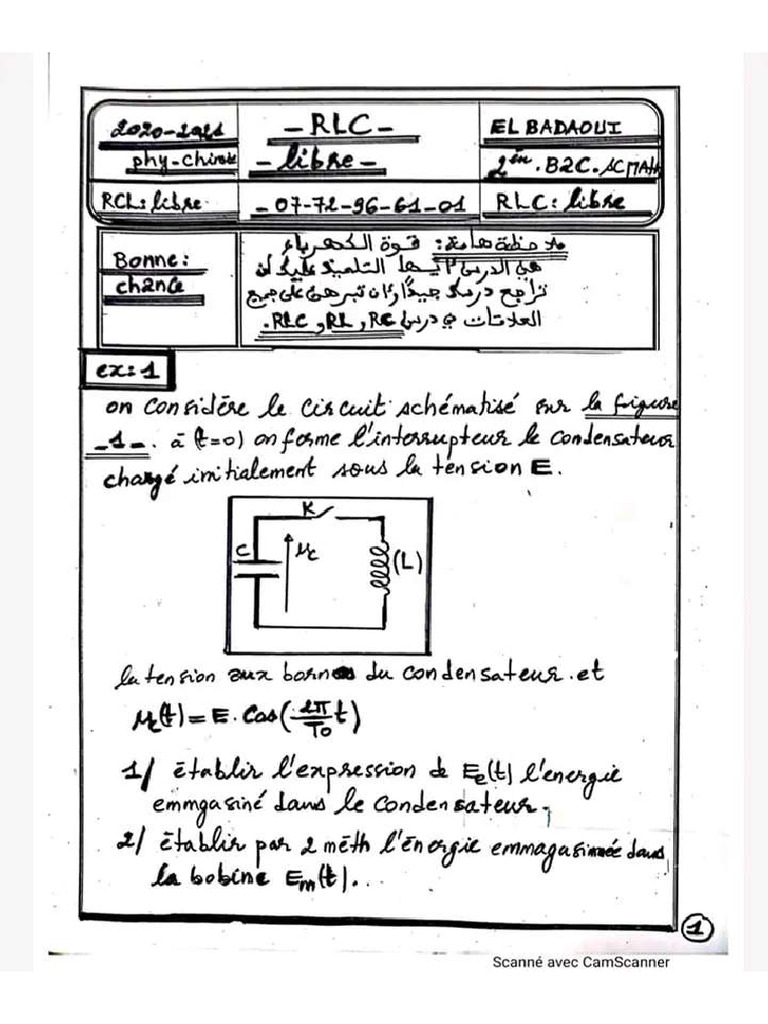 2020-2021
phy-chimie
RCL: libre
- RLC -
- libre -
- 07-72-96-61-01
EL BADAOUI
2èm. B2C. SCMATH
RLC: libre
Bonne:
chance
ملاحظة هامة: قوة الكهرباء
هي الدرس أيها التلميذ عليك أن
تراجع درسك جيدًا وأن تبرهن على جميع
العلاقات في درس RC و RL و RLC.
ex: 1
on considère le circuit schématisé sur la figure
-1-. à (t=0) on ferme l'interrupteur le condensateur
chargé initialement sous la tension E.
K
C
uc
(L)
la tension aux bornes du condensateur. et
uc(t) = E. Cos(2π/T0 t)
1/ établir l'expression de Ee(t) l'energie
emmgasiné dans le condensateur.
2/ établir par 2 méth l'énergie emmagasinnée dans
la bobine Em(t)...
1
Scanné avec CamScanner